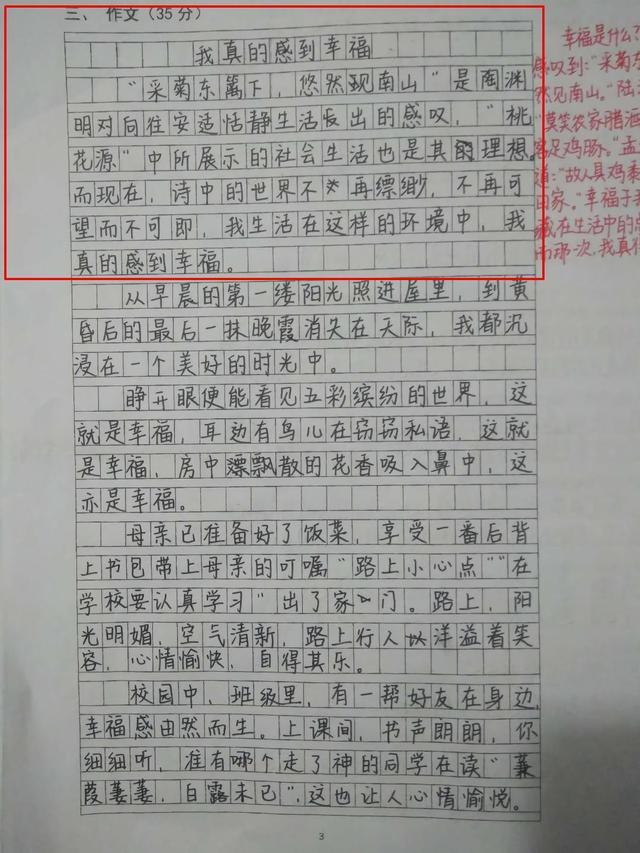 三、作文(35分)
我真的感到幸福
“采菊东篱下，悠然现南山”是陶渊
明对向往安适恬静生活长出的感叹，“桃
花源”中所展示的社会生活也是其的理想。
而现在，诗中的世界不再缥缈，不再可
望而不可即，我生活在这样的环境中，我
真的感到幸福。
从早晨的第一缕阳光照进屋里，到黄
昏后的最后一抹晚霞消失在天际，我都沉
浸在一个美好的时光中。
睁开眼便能看见五彩缤纷的世界，这
就是幸福，耳边有鸟儿在窃窃私语，这就
是幸福，房中飘散的花香吸入鼻中，这
亦是幸福。
母亲已准备好了饭菜，享受一番后背
上书包带上母亲的叮嘱“路上小心点”“在
学校要认真学习”出了家门。路上，阳
光明媚，空气清新，路上行人以洋溢着笑
容，心情愉快，自得其乐。
校园中，班级里，有一帮好友在身边，
幸福感由然而生。上课间，书声朗朗，你
细细听，准有哪个走了神的同学在读“蒹
葭萋萋，白露未已”，这也让人心情愉悦。
3
幸福是什么？
感叹到：“采菊东
然见南山。”陆
“莫笑农家腊酒
客足鸡豚。”孟
道：“故人具鸡黍
田家。”幸福于我
藏在生活中的
而那次，我真